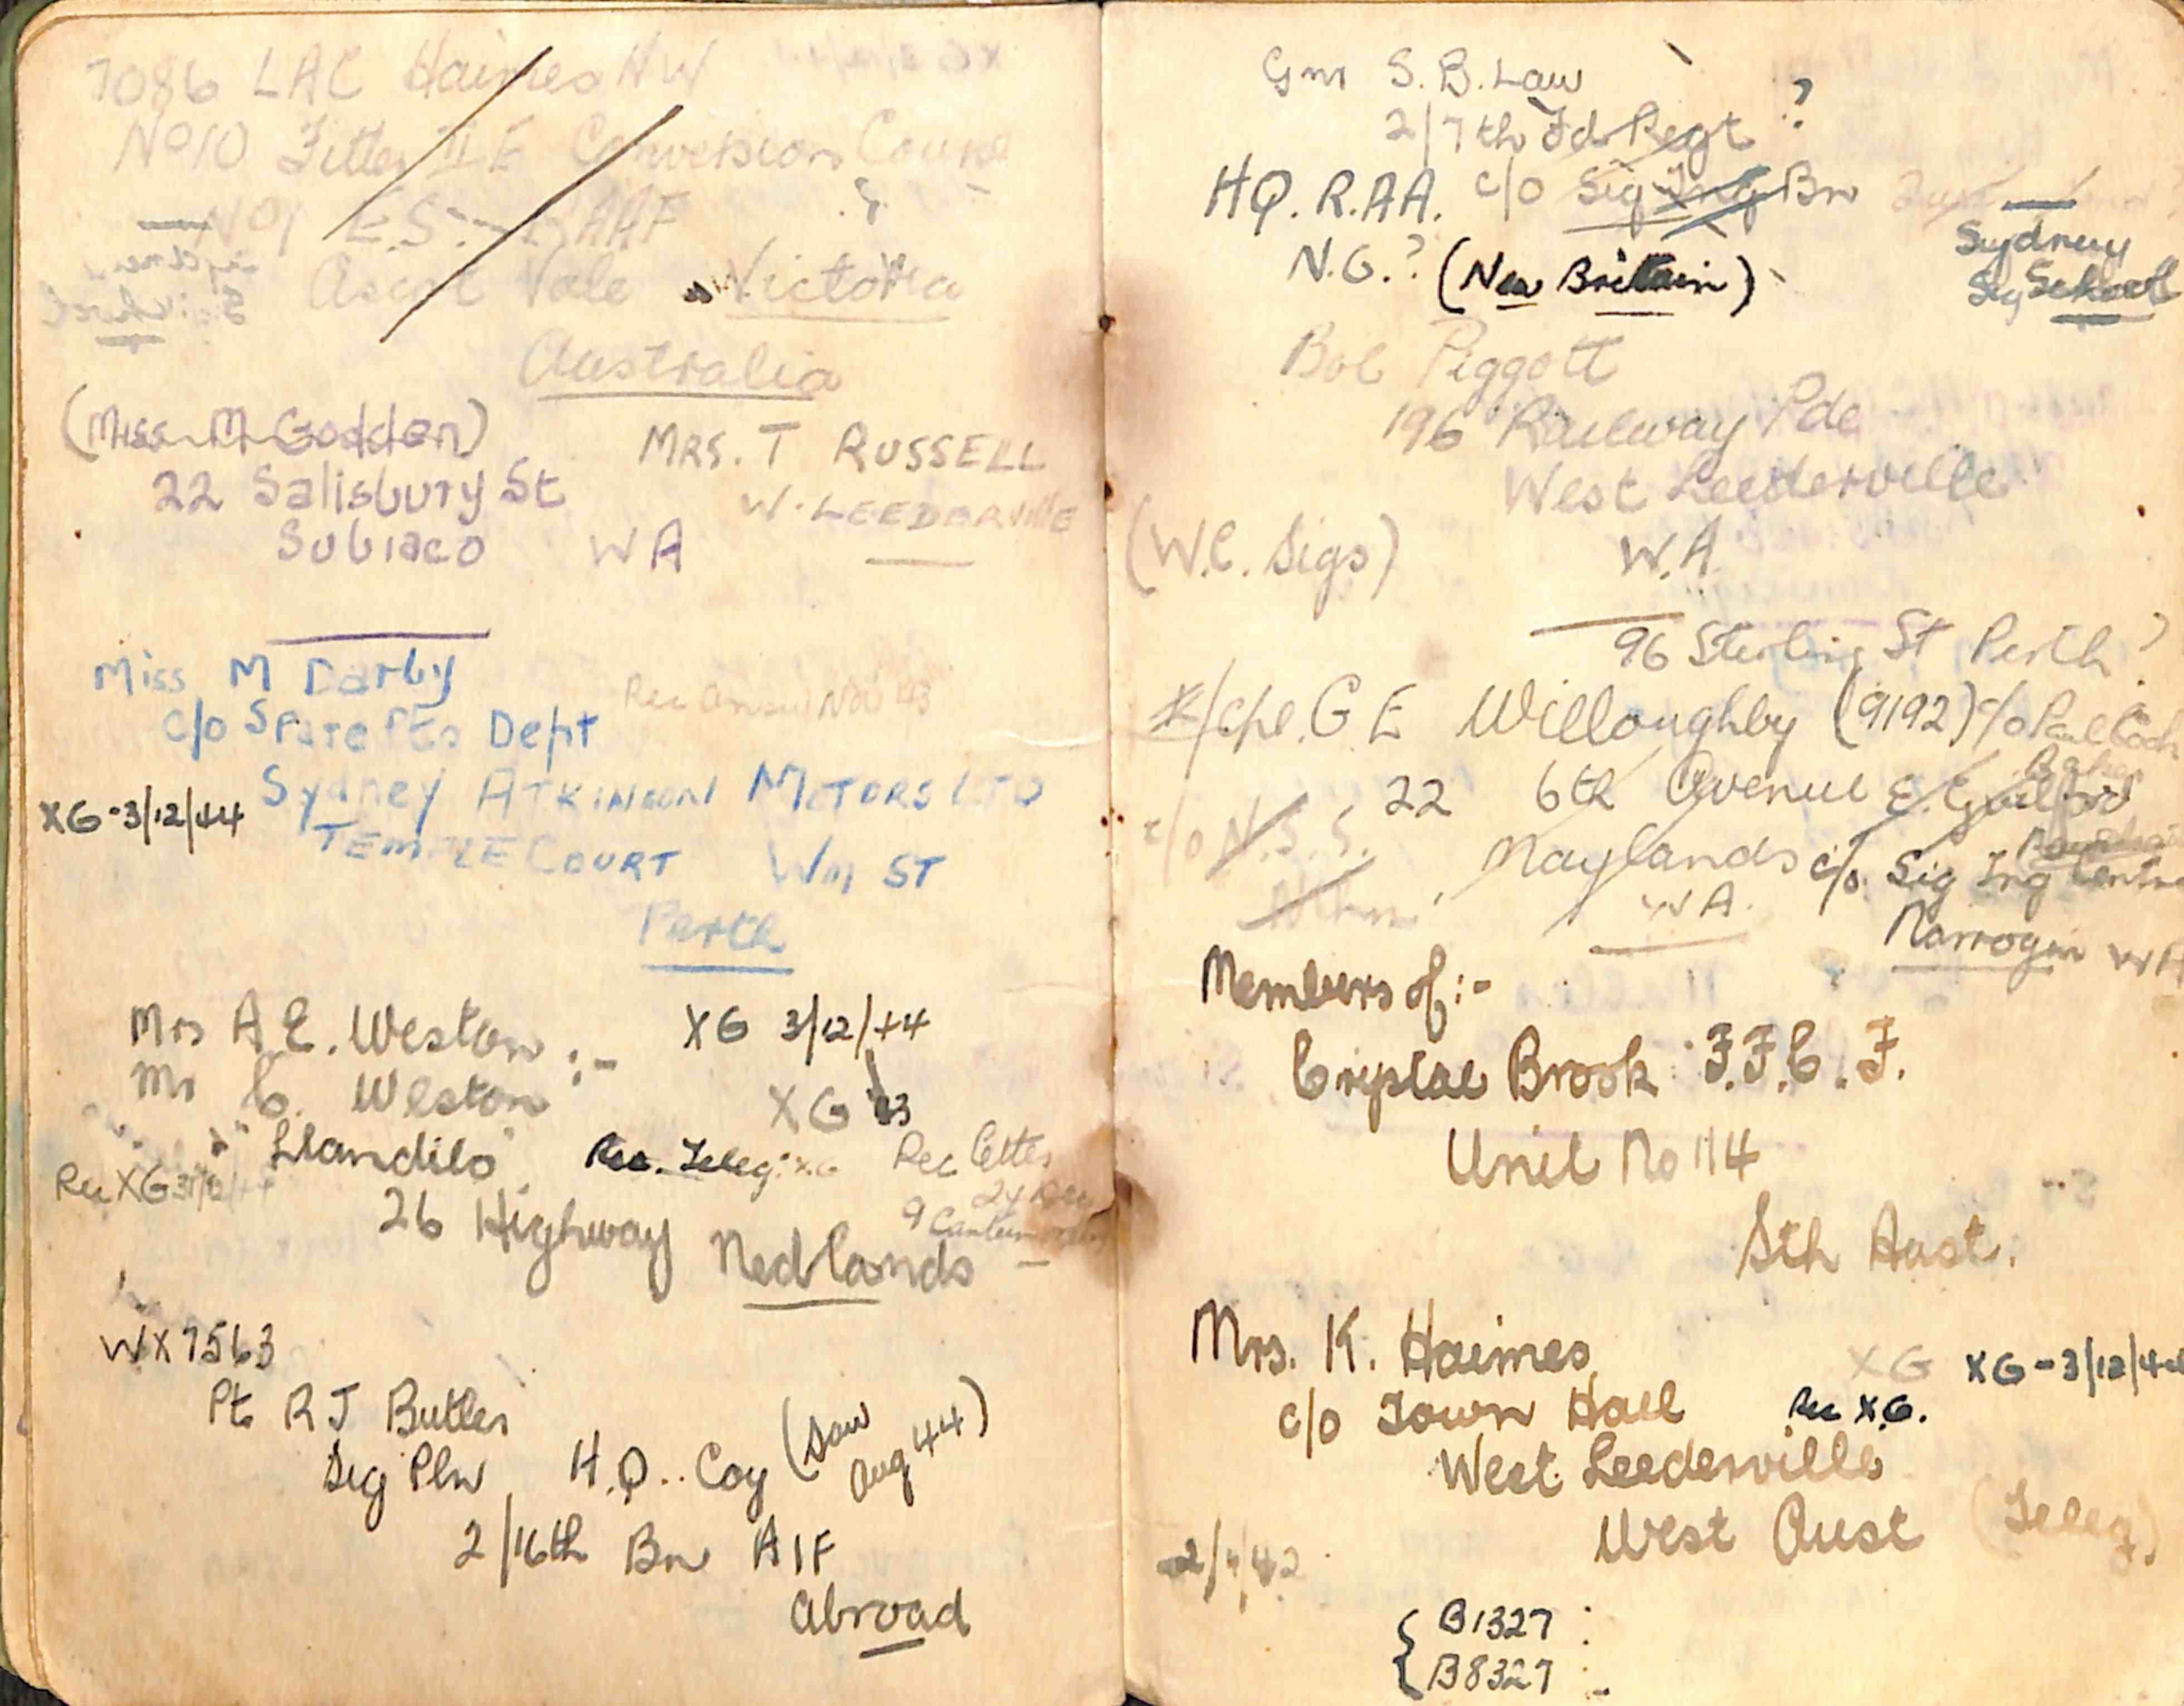 7086 LAC Haimes N W
No 10 Fitter II E Conversion Course
No 1 E.S. RAAF
Ascot Vale Victoria
Australia
(Miss M Godden)
22 Salisbury St
Subiaco WA
MRS. T RUSSELL
W. LEEDERVILLE
Miss M Darby
c/o Spare Pts Dept
Rec Nov 43
Sydney ATKINSON MOTORS LTD
XG-3/12/44
TEMPLE COURT Wm ST
Perth
Mrs A E. Weston :-
Mr C. Weston
XG 3/12/44
XG 43
"Llandilo"
Rec. Teleg: XG
Rec letter
Rec XG 3/12/44
26 Highway Nedlands
WX7563
Pte R J Butler
Sig Pln H.Q.. Coy (Saw Aug 44)
2/16th Bn AIF
Abroad
Gnr S. B. Law
2/7th Fd Regt ?
HQ. R.A.A. c/o Sig Trg Bn
N.G.? (New Britain)
Sydney
Sig School
Bob Piggott
196 Railway Pde
West Leederville
(W.C. Sigs) W.A.
96 Sterling St Perth ?
/Cpl. G E Willoughby (9192) c/o
22 6th Avenue E. Guilford
c/o N.S.S.
Maylands c/o Sig Trg Centre
WA.
Narrogin WA
Members of :-
Crystal Brook F.F.C.F.
Unit No 114
Sth Aust.
Mrs. K. Haimes
XG XG-3/12/44
c/o Town Hall Rec X.G.
West Leederville
West Aust (Teleg.)
B1327 :
B8327